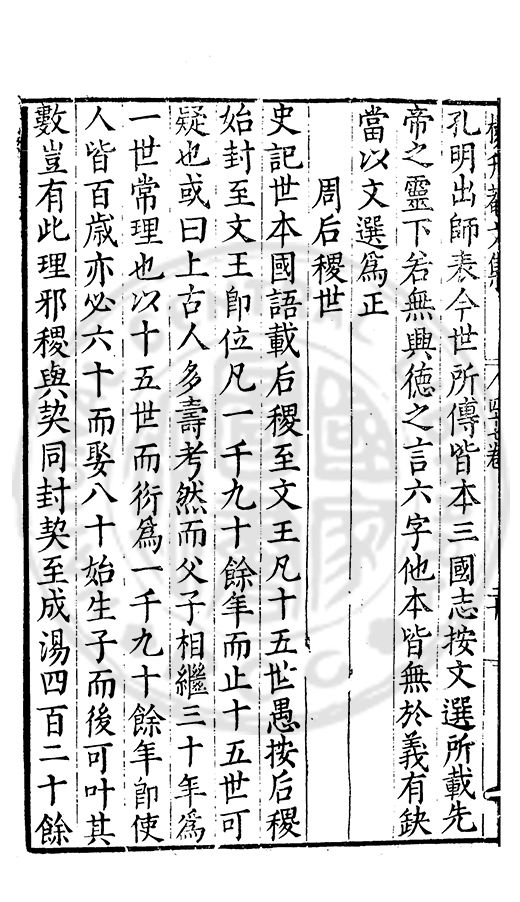 孔明出師表今世所傳皆本三國志按文選所載先
帝之靈下若無興德之言六字他本皆無於義有缺
當以文選爲正
周后稷世
史記世本國語載后稷至文王凡十五世愚按后稷
始封至文王卽位凡一千九十餘年而止十五世可
疑也或曰上古人多壽考然而父子相繼三十年爲
一世常理也以十五世而衍爲一千九十餘年卽使
人皆百歲亦必六十而娶八十始生子而後可叶其
數豈有此理邪稷與契同封契至成湯四百二十餘